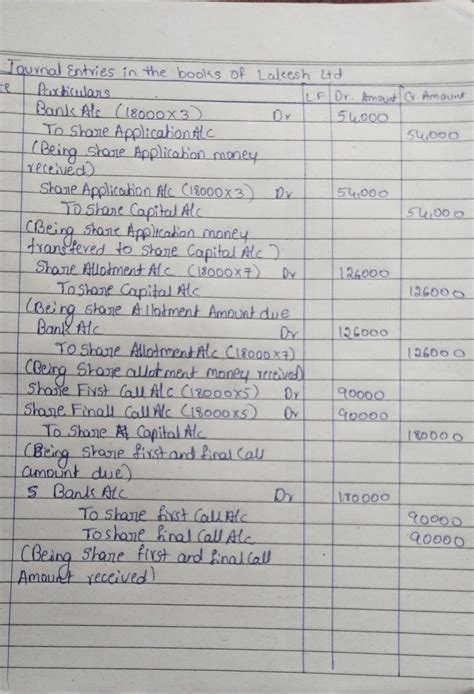 Journal Entries in the books of Lakesh Ltd
te Particulars L F Dr. Amount Cr. Amount
Bank A/c (18000×3) Dr 54,000
To Share Application A/c 54,000
(Being Share Application money
received)
Share Application A/c (18000×3) Dr 54,000
To Share Capital A/c 54,000
(Being Share Application money
transfered to Share Capital A/c)
Share Allotment A/c (18000×7) Dr 126000
To Share Capital A/c 126000
(Being Share Allotment Amount due
Bank A/c Dr 126000
To Share Allotment A/c (18000×7) 126000
(Being Share allotment money received)
Share First Call A/c (18000×5) Dr 90000
Share Finall Call A/c (18000×5) Dr 90000
To Share Capital A/c 180000
(Being Share first and final Call
amount due)
5 Bank A/c Dr 180000
To Share first Call A/c 90000
To share final Call A/c 90000
(Being Share first and final Call
Amount received)